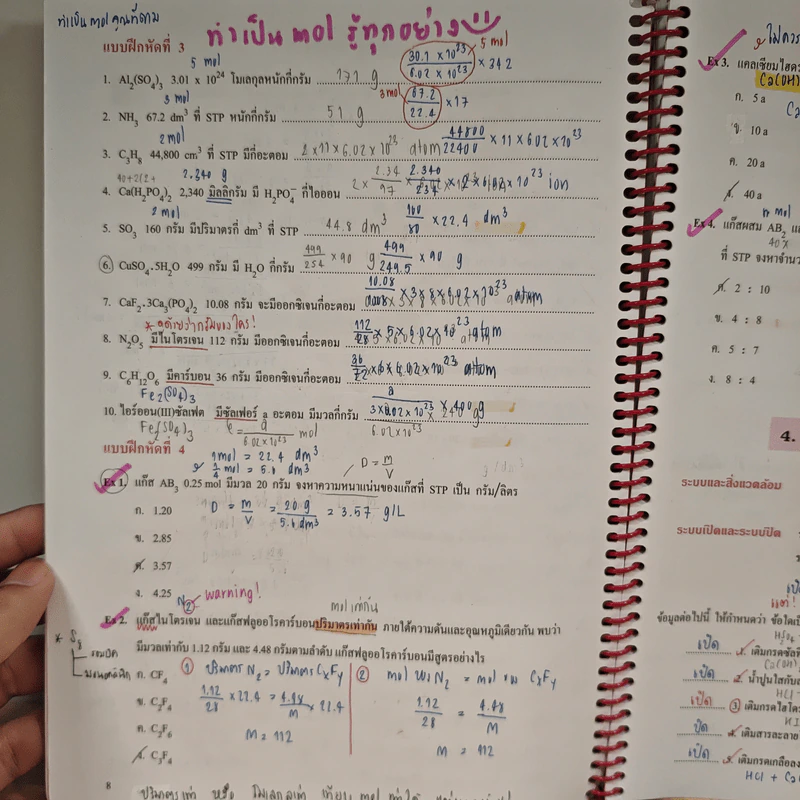 ทำเป็น mol คูณที่ถาม
ทำเป็น mol รู้ทุกอย่าง
แบบฝึกหัดที่ 3
5 mol
1. Al2(SO4)3 3.01 x 10^24 โมเลกุลหนักกี่กรัม 171 g 30.1 × 10^23 / 6.02 × 10^23 × 342
5 mol
3 mol
2. NH3 67.2 dm^3 ที่ STP หนักกี่กรัม 51 g 67.2 / 22.4 × 17
3 mol
2 mol
3. C3H8 44,800 cm^3 ที่ STP มีกี่อะตอม 2 × 11 × 6.02 × 10^23 atom 44800 / 22400 × 11 × 6.02 × 10^23
2.340 g
4. Ca(H2PO4)2 2,340 มิลลิกรัม มี H2PO4^- กี่ไอออน 2 × 2.34 / 97 2.340 / 234 × 10^23 ion
2 mol
5. SO3 160 กรัม มีปริมาตรกี่ dm^3 ที่ STP 44.8 dm^3 160 / 80 × 22.4 dm^3
6. CuSO4.5H2O 499 กรัม มี H2O กี่กรัม 499 / 254 × 90 g 499 / 249.5 × 90 g
7. CaF2.3Ca3(PO4)2 10.08 กรัม จะมีออกซิเจนกี่อะตอม 10.08 / 1008 atom
8. N2O5 มีไนโตรเจน 112 กรัม มีออกซิเจนกี่อะตอม 112 / 28 × 5 × 6.02 × 10^23 atom
9. C6H12O6 มีคาร์บอน 36 กรัม มีออกซิเจนกี่อะตอม 36 / 72 × 6 × 6.02 × 10^23 atom
Fe2(SO4)3
10. ไอร์ออน(III)ซัลเฟต มีซัลเฟอร์ a อะตอม มีมวลกี่กรัม a / 3 × 6.02 × 10^23 × 400 g
Fe2(SO4)3 a / 6.02 × 10^23 mol
แบบฝึกหัดที่ 4
1 mol = 22.4 dm^3
1/4 mol = 5.6 dm^3
D = m / V
Ex 1. แก๊ส AB3 0.25 mol มีมวล 20 กรัม จงหาความหนาแน่นของแก๊สที่ STP เป็น กรัม/ลิตร
ก. 1.20 D = m / V = 20 g / 5.6 dm^3 = 3.57 g/L
ข. 2.85
ค. 3.57
ง. 4.25
N2 warning!
mol เท่ากัน
Ex 2. แก๊สไนโตรเจน และแก๊สฟลูออโรคาร์บอนปริมาตรเท่ากัน ภายใต้ความดันและอุณหภูมิเดียวกัน พบว่า
มีมวลเท่ากับ 1.12 กรัม และ 4.48 กรัมตามลำดับ แก๊สฟลูออโรคาร์บอนมีสูตรอย่างไร
* S8
ก. CF4 ① ปริมาตร N2 = ปริมาตร CxFy ② mol ของ N2 = mol ของ CxFy
ข. C2F4 1.12 / 28 × 22.4 = 4.48 / M × 22.4 1.12 / 28 = 4.48 / M
ค. C2F6 M = 112 M = 112
ง. C3F4
8
ไม่ควร
Ex 3. แคลเซียมไฮดร
Ca(OH)
ก. 5a
ข. 10a
ค. 20a
ง. 40a
n mol
Ex 4. แก๊สผสม AB2 แ
40%
ที่ STP จงหาจำนว
ก. 2 : 10
ข. 4 : 8
ค. 5 : 7
ง. 8 : 4
4.
ระบบและสิ่งแวดล้อม
ระบบเปิดและระบบปิด
ข้อมูลต่อไปนี้ ให้กำหนดว่า ข้อใดเป็
H2SO4
เปิด 1. เติมกรดซัลฟิ
Ca(OH)
เปิด 2. น้ำปูนใสกับส
HCl
เปิด ③ เติมกรดไฮโดร
ปิด 4. เติมสารละลาย
เปิด 5. เติมกรดเกลือลง
HCl + Ca